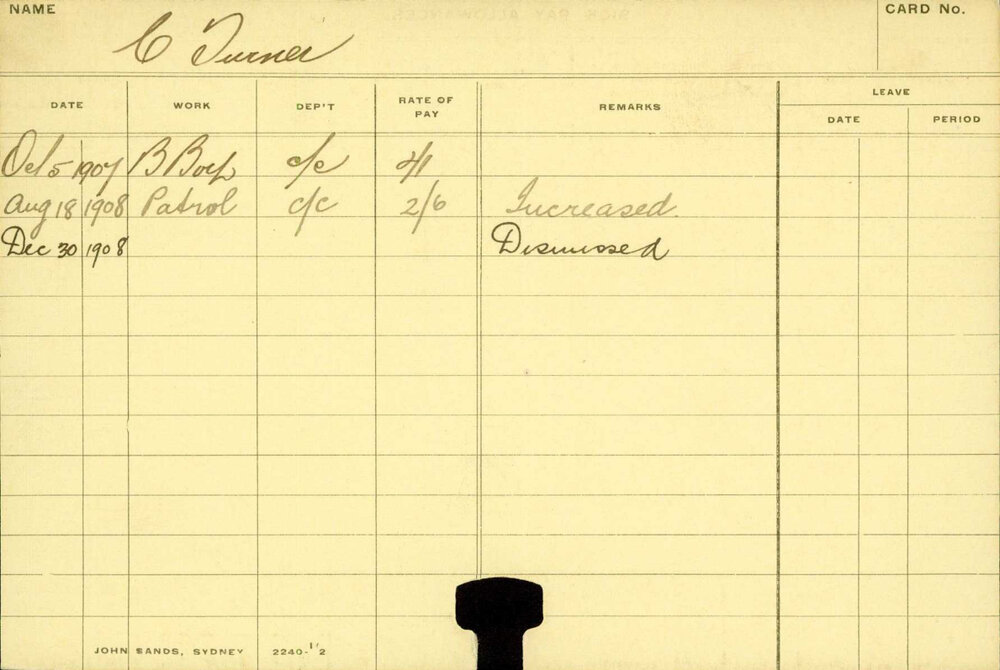 NAME
CARD No.
C Turner
DATE WORK DEP'T RATE OF PAY REMARKS LEAVE
DATE PERIOD
Oct 5 1907 B Boy c/c
Aug 18 1908 Patrol c/c 2/6 Increased.
Dec 30 1908 Dismissed
JOHN SANDS, SYDNEY 2240-